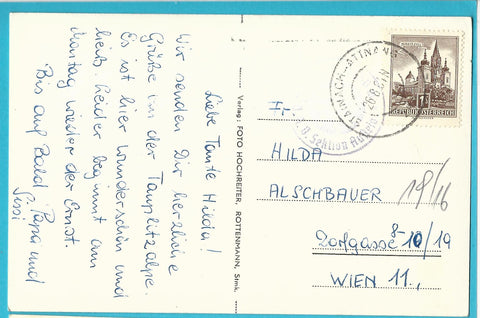 Liebe Tante Hilda!
Wir senden Dir herzliche
Grüße von der Tauplitzalpe.
Es ist hier wunderschön und
heiß. Leider beginnt am
Montag wieder der Ernst.
Bis auf Bald Papa und
Sissi
Verlag: FOTO HOCHREITER, ROTTENMANN, Stmk.
ATTNANG
Sektion
REPUBLIK ÖSTERREICH
HILDA
ALSCHBAUER
Dorfgasse 8-10/19
WIEN 11.,